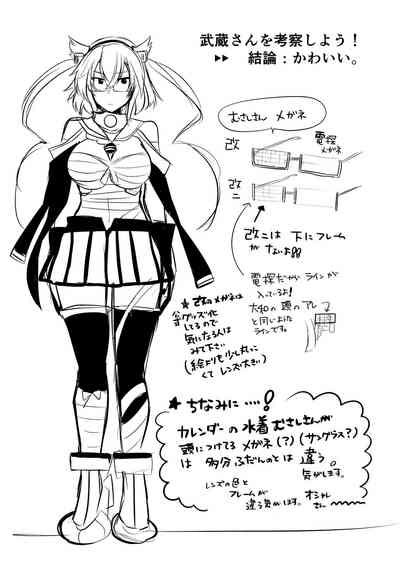 武蔵さんを考察しよう！
▶▶ 結論：かわいい。
むさしさん メガネ
改
電探
メガネ
改
二
改二は 下にフレーム
がないよ
電探だから ラインが
入っているよ！
大和の頭のアレ
と同じような
ラインです。
★ 改のメガネは
公式グッズ化
してるので
気になる人は
みて下さい
(絵よりも少し丸
くて レンズ大きい)
★ ちなみに‥‥！
カレンダーの 水着むさしさんが
頭につけてる メガネ(?)(サングラス?)
は 多分 ふだんのとは 違う。
気がします。
レンズの色と
フレームが
違う気がします。
オシャレ
さん